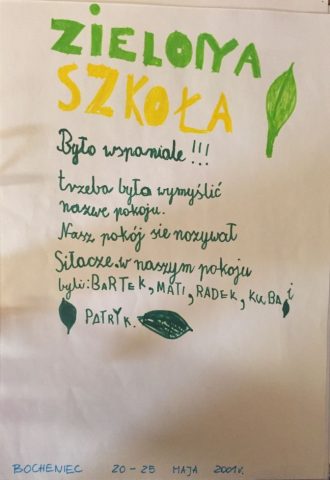 ZIELONA
SZKOŁA
Było wspaniale!!!
trzeba było wymyślić
nazwe pokoju.
Nasz pokój sie nazywał
Siłacze.w naszym pokoju
byli: BARTEK, MATI, RADEK, KUBA i
PATRYK.
BOCHENIEC 20-25 MAJA 2001r.